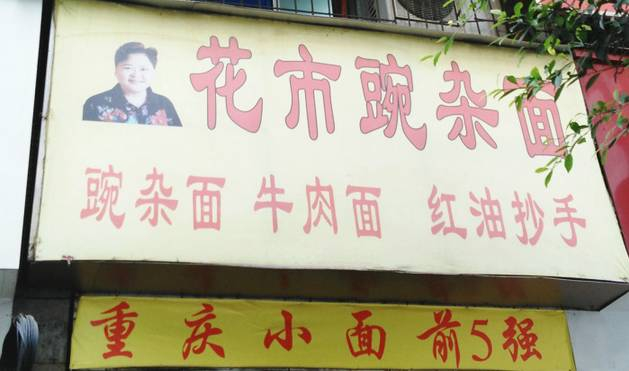 花市豌杂面
豌杂面 牛肉面 红油抄手
重庆小面 前5强